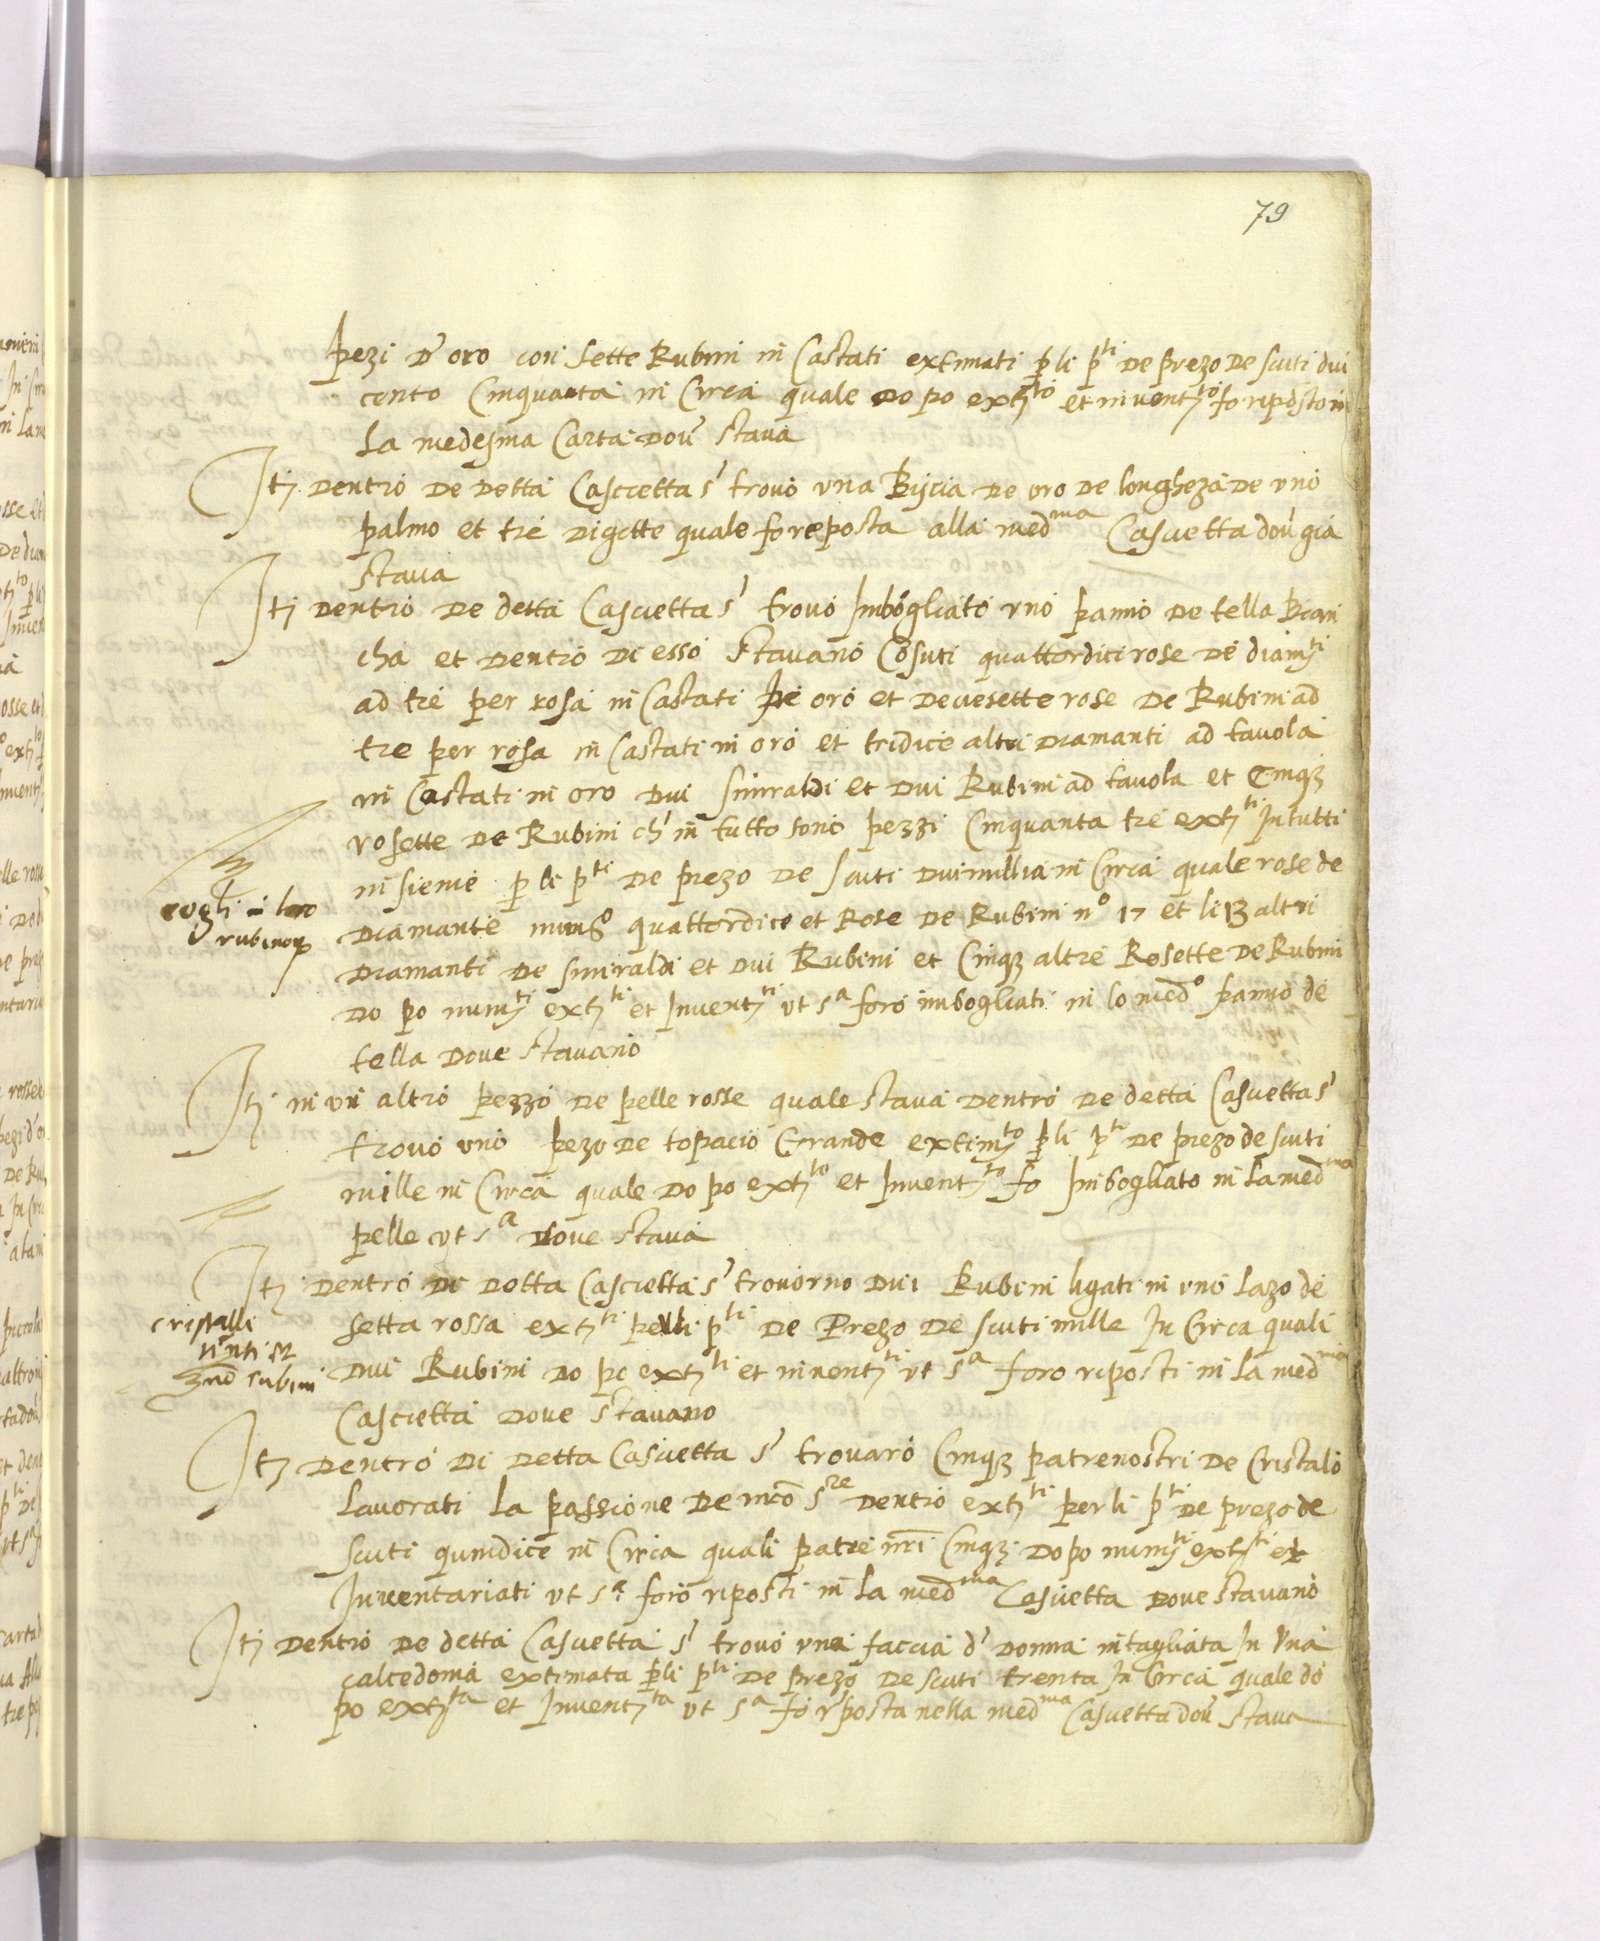 79
pezi d'oro con sette Rubini in Castati extimati p li p^ti de prezo de scuti dui
cento Cinquanta in Circa quale dopo ext^to et invent^to fo riposto in
La medesma Carta dov' stava
It dentro de detta Cascetta s' trovo una Biscia de oro de longheza de uno
palmo et tre digette quale fo reposta alla med^ma Cascietta dov' gia
stava
It dentro de detta Cascietta s' trovo Imbogliato uno panno de tella Bian
cha et dentro di esso stavano Cosuti quattordici rose de diam^ti
ad tre per rosa in Castati de oro et decesette rose de Rubini ad
tre per rosa in Castati in oro et tridice altri diamanti ad tavola
in Castati in oro dui smiraldi et dui Rubini ad tavola et Cinq3
rosette de Rubini ch' in tutto sono pezzi Cinquanta tre ext^ti In tutti
insieme p li p^ti de prezo de scuti dui millia in Circa quale rose de
diamante num^o quattordice et Rose de Rubini n^o 17 et li 13 altri
diamanti de smiraldi et dui Rubini et Cinq3 altre Rosette de Rubini
dopo num^ti ext^ti et Invent^ti ut s^a foro imbogliati in lo med^o panno de
tella dove stavano
It in un altro pezzo de pelle rosse quale stava dentro de detta Cascietta s'
trovo uno pezo de topacio Grande extim^to p li p^ti de prezo de scuti
mille in Circa quale dopo ext^to et Invent^to fo Imbogliato in la med^ma
pelle ut s^a dove stava
It dentro di detta Cascietta s' trovorno dui Rubini ligati in uno lazo de
setta rossa ext^ti pelli p^ti de Prezo de scuti mille In Circa quali
dui Rubini dopo ext^ti et invent^ti ut s^a foro riposti in la med^ma
Cascietta dove stavano
It dentro di detta Cascietta s' trovaro Cinq3 patrenostri de Cristalo
Lavorati la passione de nro s^re dentro ext^ti per li p^ti de prezo de
scuti quindice in Circa quali patre nri Cinq3 dopo num^ti ext^ti et
Inventariati ut s^a foro riposti in la med^ma Casietta dove stavano
It dentro de detta Cascietta s' trovo una faccia d' donna intagliata In Una
calcedonia extimata p li p^ti de prezo de scuti trenta In Circa quale do
po ext^ta et Invent^ta ut s^a fo r'posta nella med^ma Casietta dov' stava
cristalli
tinti
rubini